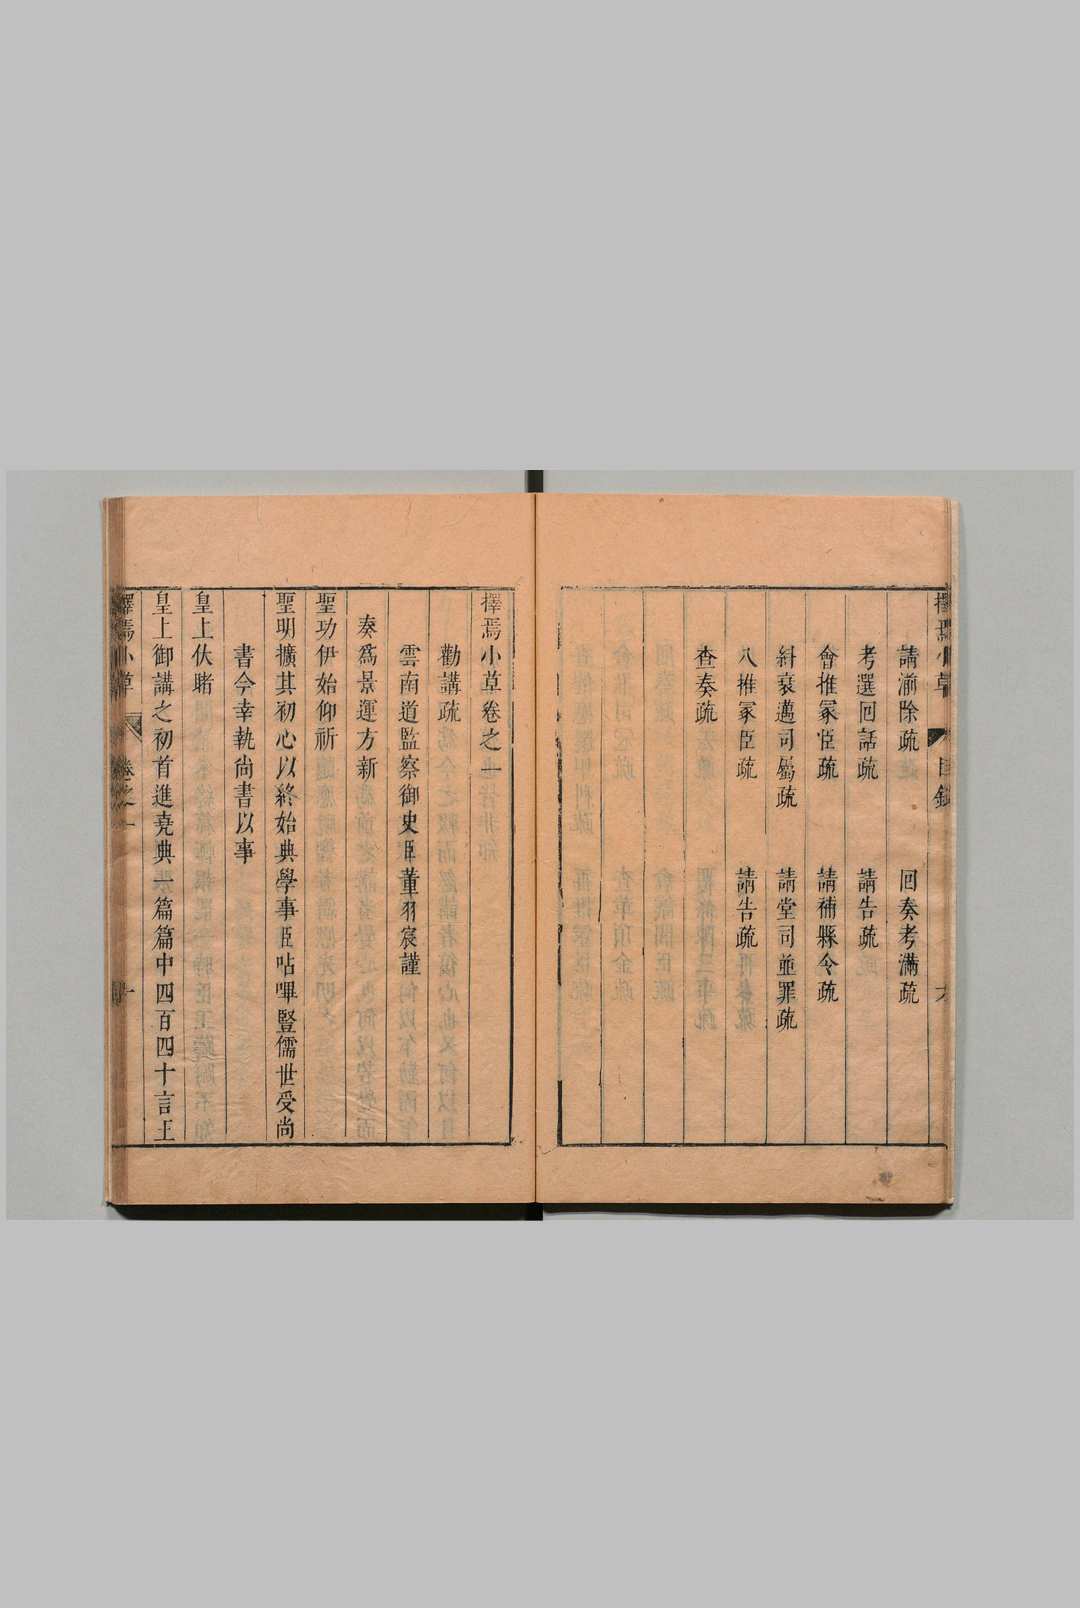 擇焉小草 目錄 六
請渝除疏 回奏考滿疏
考選回話疏 請告疏
會推冢臣疏 請補縣令疏
糾衰邁司屬疏 請堂司並罪疏
八推冢臣疏 請告疏
查奏疏
擇焉小草卷之一
勸講疏
雲南道監察御史臣董羽宸謹
奏爲景運方新
聖功伊始仰祈
聖明擴其初心以終始典學事臣呫嗶豎儒世受尚
書今幸執尚書以事
皇上伏睹
皇上御講之初首進堯典一篇篇中四百四十言王
擇焉小草 卷之一 一